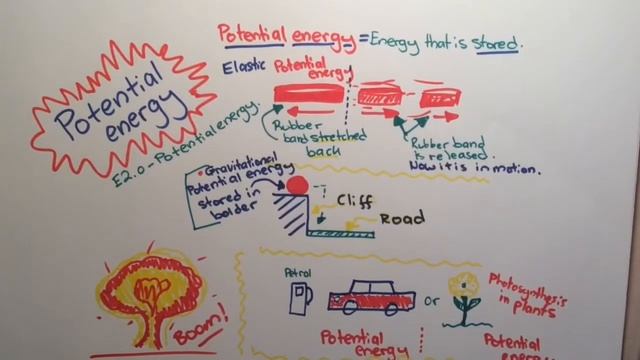 Potential energy = Energy that is stored.
Potential
energy
E2.0 - Potential energy.
Elastic Potential
energy
Rubber
band stretched
back
Rubber band
is released.
Now it is in motion.
• Gravitational
Potential energy
stored in
bolder
Cliff
Road
Boom!
Petrol
or
Photosynthesis
in plants
Potential
energy
Potential
energy